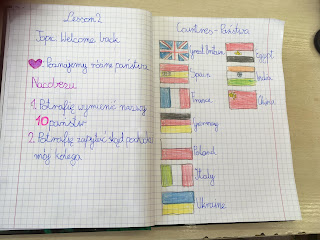 Lesson 2
Topic: Welcome back
: Poznajemy różne państwa
Nacobezu
1. Potrafię wymienić nazwy
10 państw
2. Potrafię zapytać skąd pochodzi
mój kolega
Countries - Państwa
Great Britain
Egypt
Spain
India
France
China
Germany
Poland
Italy
Ukraine